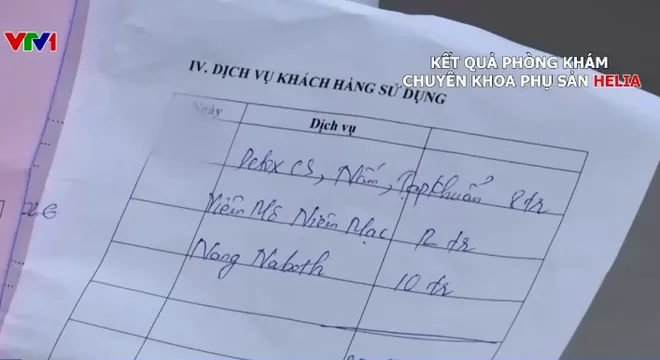 VTV1
KẾT QUẢ PHÒNG KHÁM
CHUYÊN KHOA PHỤ SẢN HELIA
IV. DỊCH VỤ KHÁCH HÀNG SỬ DỤNG
Ngày Dịch vụ
Detox CS, Nấm, Tạp khuẩn 8 tr
Viêm Mô Niêm Mạc 12 tr
Nang Naboth 10 tr